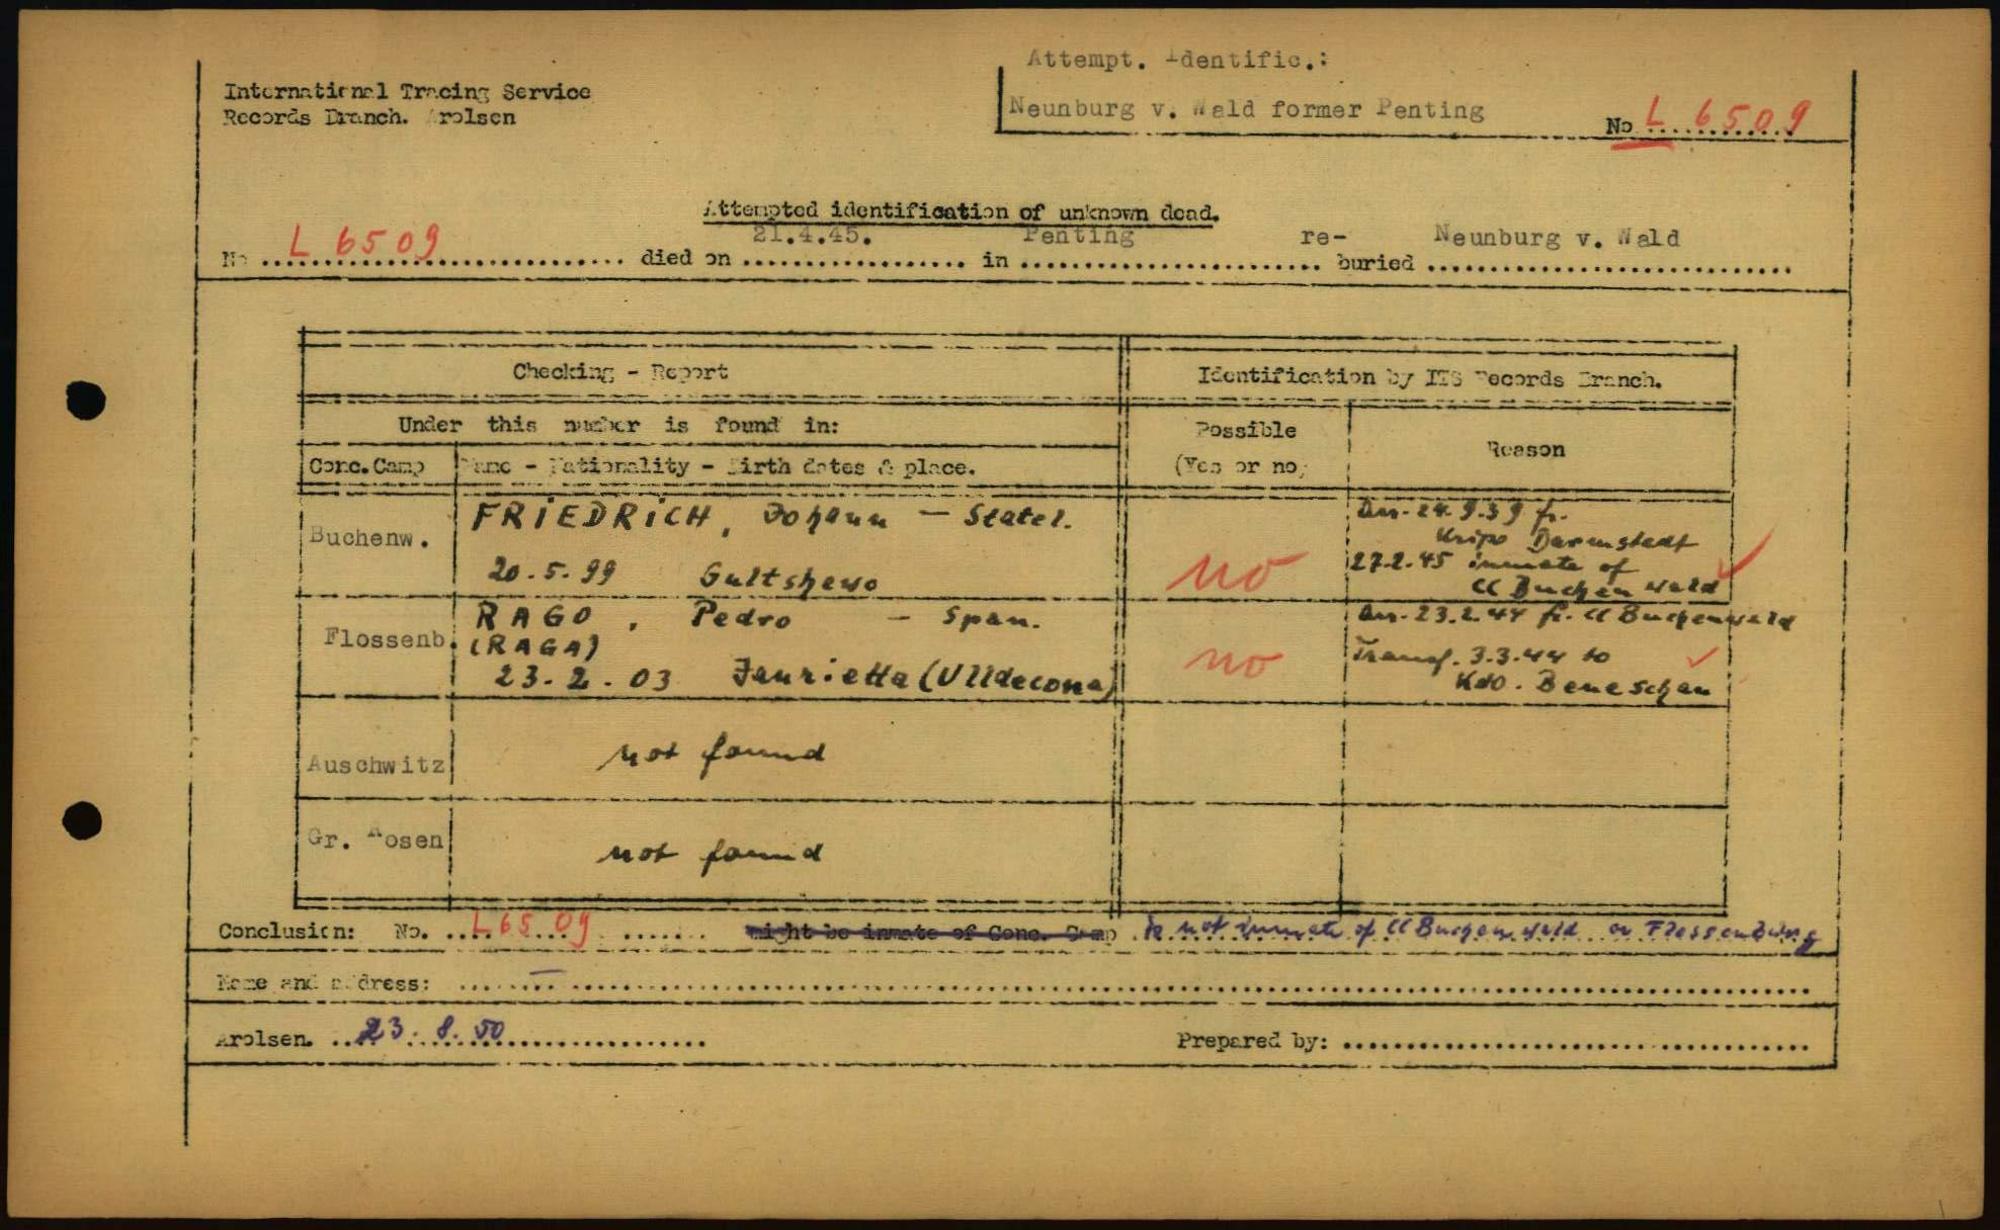 Attempt. Identific.:
International Tracing Service
Records Branch. Arolsen
Neunburg v. Wald former Penting
No L 6509
Attempted identification of unknown dead.
No L 6509 died on 21.4.45. in Penting re-buried Neunburg v. Wald
Checking - Report
Identification by ITS Records Branch.
Under this number is found in:
Possible
(Yes or no)
Reason
Conc. Camp
Name - Nationality - Birth dates & place.
Buchenw.
FRIEDRICH, Johann - Statel.
20.5.99
no
Arr. 24.9.39 fr.
Kripo Darmstadt
27.2.45 inmate of
CC Buchenwald
Flossenb.
RAGO, Pedro - Span.
(RAGA)
23.2.03 (Ulldecona)
no
Arr. 23.2.44 fr. CC Buchenwald
Transf. 3.3.44 to
Kdo. Beneschau
Auschwitz
not found
Gr. Rosen
not found
Conclusion: No. L 6509 might be inmate of Conc. Camp is not inmate of CC Buchenwald or Flossenbürg
Name and address: —
Arolsen. 23.8.50
Prepared by: